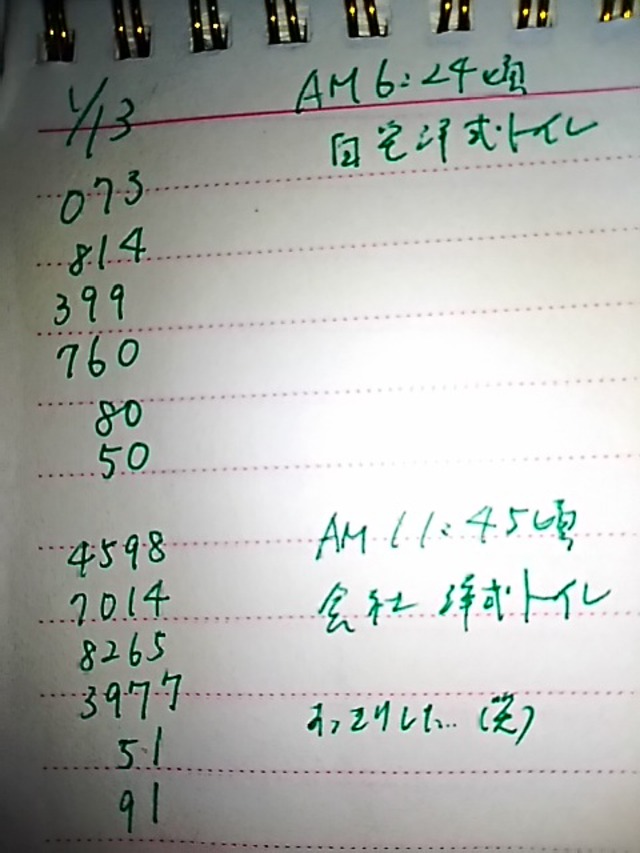 1/13 AM6:24頃
自宅洋式トイレ
073
814
399
760
80
50
4598 AM11:45頃
7014 会社 洋式トイレ
8265
3977
51 すっきりした…(笑)
91